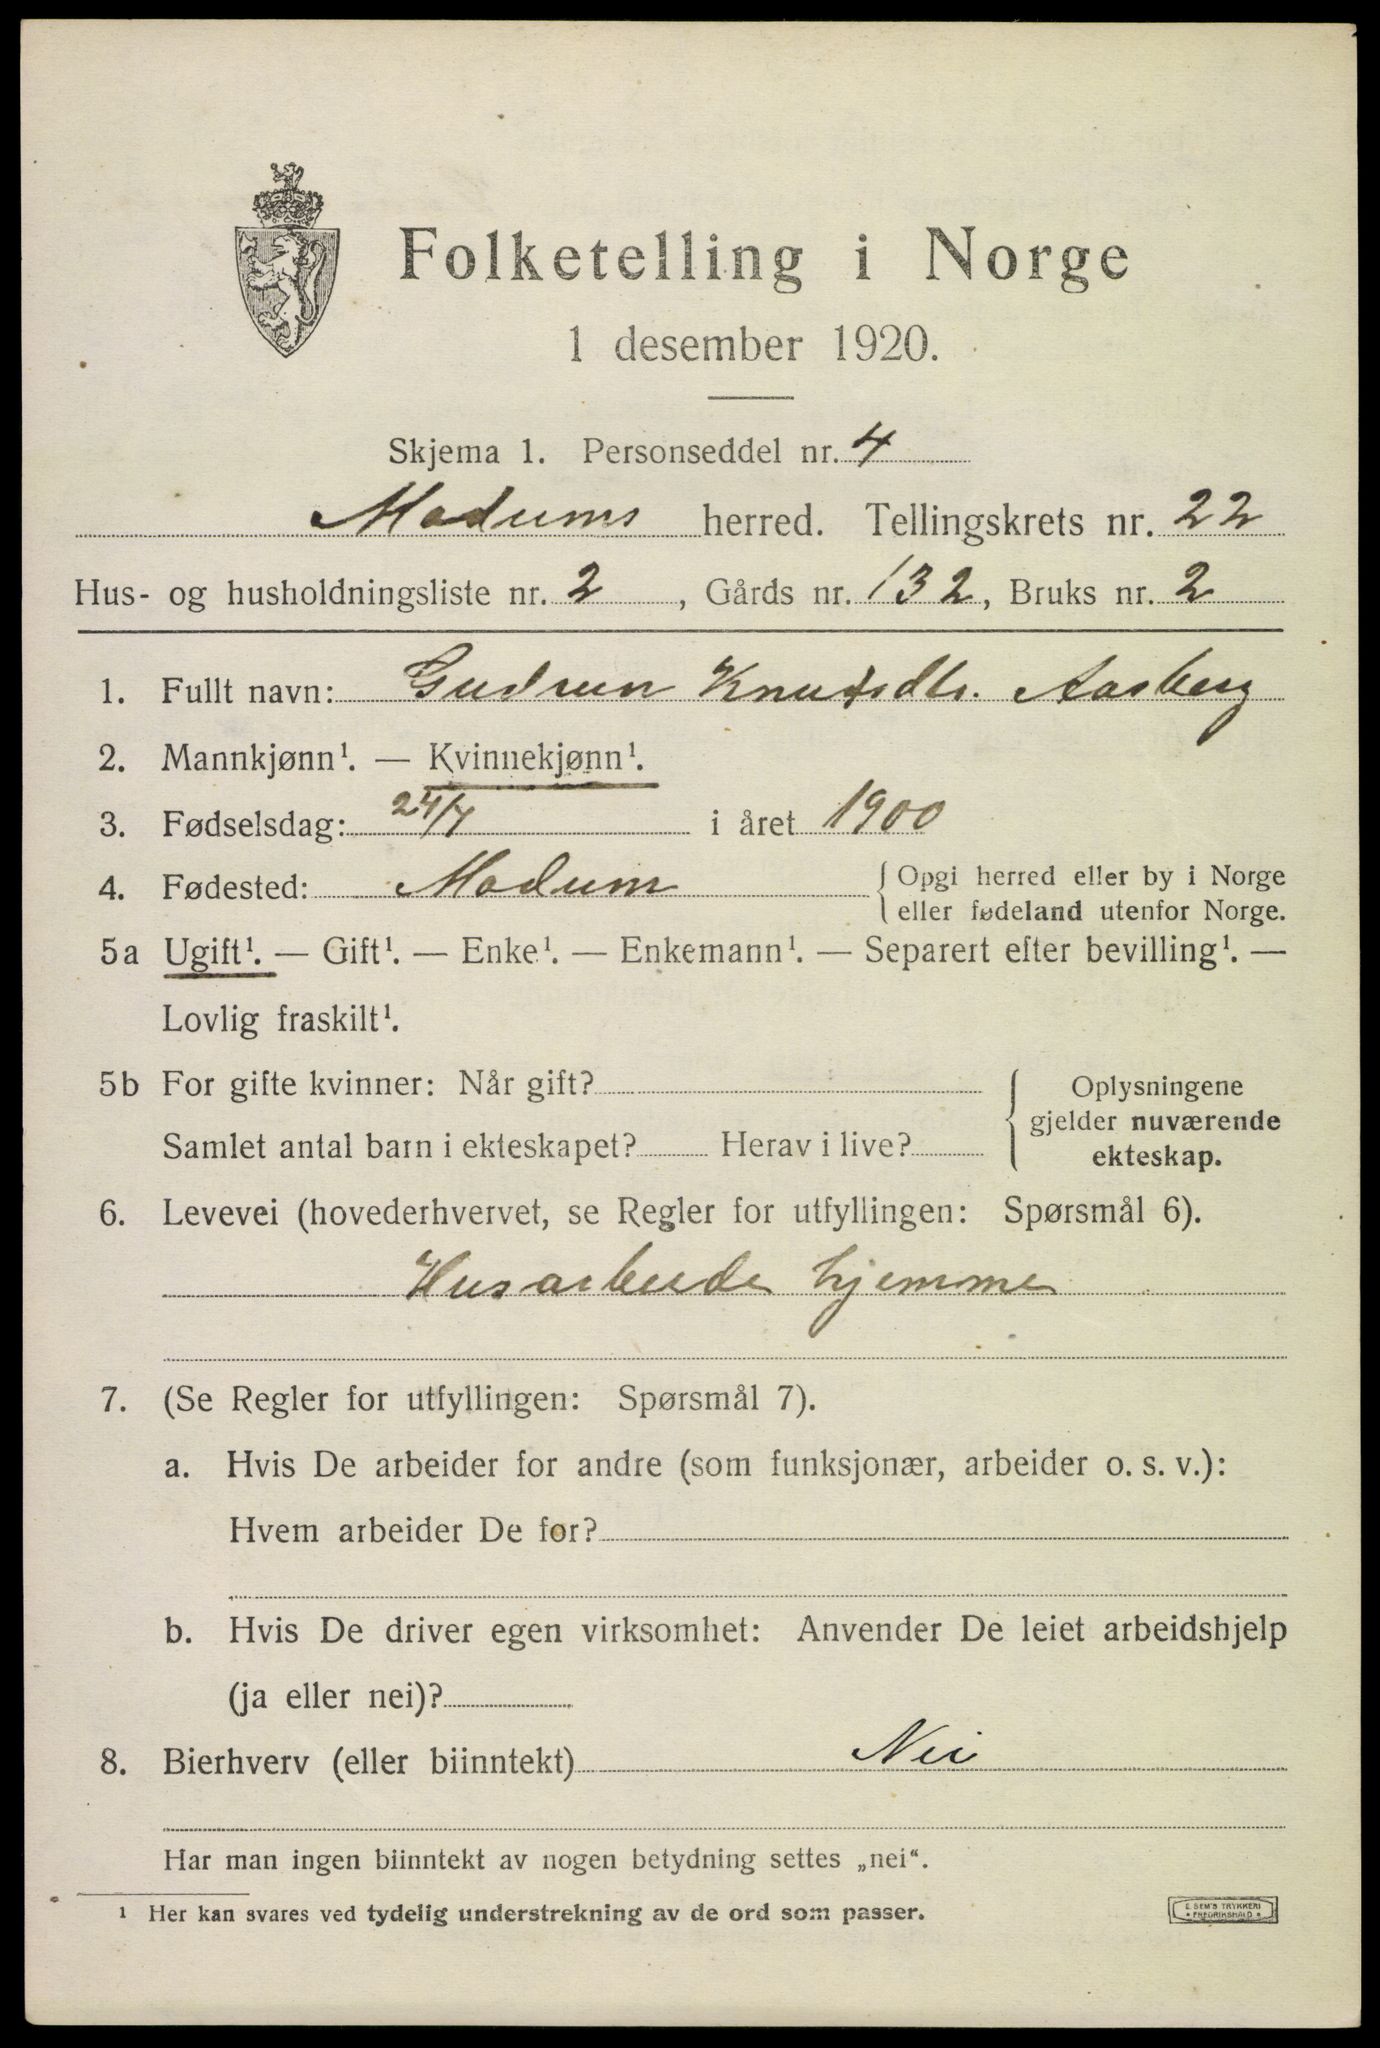 Folketelling i Norge
1 desember 1920.
Skjema 1. Personseddel nr. 4
Modums herred. Tellingskrets nr. 22
Hus- og husholdningsliste nr. 2, Gårds nr. 132, Bruks nr. 2
1. Fullt navn: Gudrun Knutsdtr. Aasberg
2. Mannkjønn¹. — Kvinnekjønn¹.
3. Fødselsdag: 24/7 i året 1900
4. Fødested: Modum { Opgi herred eller by i Norge
eller fødeland utenfor Norge.
5a Ugift¹. — Gift¹. — Enke¹. — Enkemann¹. — Separert efter bevilling¹. —
Lovlig fraskilt¹.
5b For gifte kvinner: Når gift? { Oplysningene
gjelder nuværende
Samlet antal barn i ekteskapet? Herav i live?
ekteskap.
6. Levevei (hovederhvervet, se Regler for utfyllingen: Spørsmål 6).
Husarbeide hjemme
7. (Se Regler for utfyllingen: Spørsmål 7).
a. Hvis De arbeider for andre (som funksjonær, arbeider o. s. v.):
Hvem arbeider De for?
b. Hvis De driver egen virksomhet: Anvender De leiet arbeidshjelp
(ja eller nei)?
8. Bierhverv (eller biinntekt) Nei
Har man ingen biinntekt av nogen betydning settes „nei“.
¹ Her kan svares ved tydelig understrekning av de ord som passer.
E. SEM'S TRYKKERI
* FREDRIKSHALD *